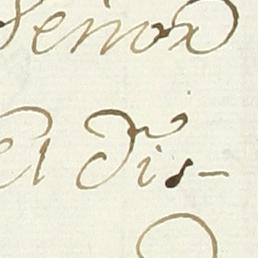 Señor
el Dis-